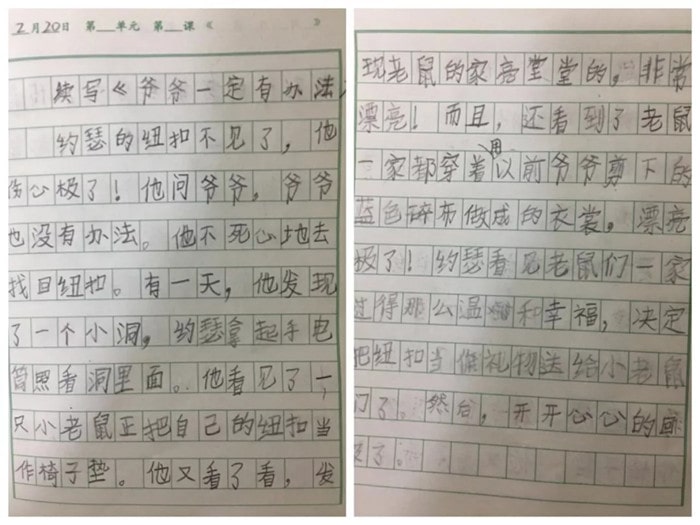 2月20日 第__单元 第__课《 》
续写《爷爷一定有办法
约瑟的纽扣不见了，他
伤心极了！他问爷爷，爷爷
也没有办法。他不死心地去
找目纽扣。有一天，他发现
了一个小洞，约瑟拿起手电
筒照看洞里面。他看见了一
只小老鼠正把自己的纽扣当
作椅子垫。他又看了看，发
现老鼠的家亮堂堂的，非常
漂亮！而且，还看到了老鼠
一家都穿着用以前爷爷剪下的
蓝色碎布做成的衣裳，漂亮
极了！约瑟看见老鼠们一家
过得那么温 和幸福，决定
把纽扣当 礼物法给小老鼠
们了。然后，开开心心的回
了。